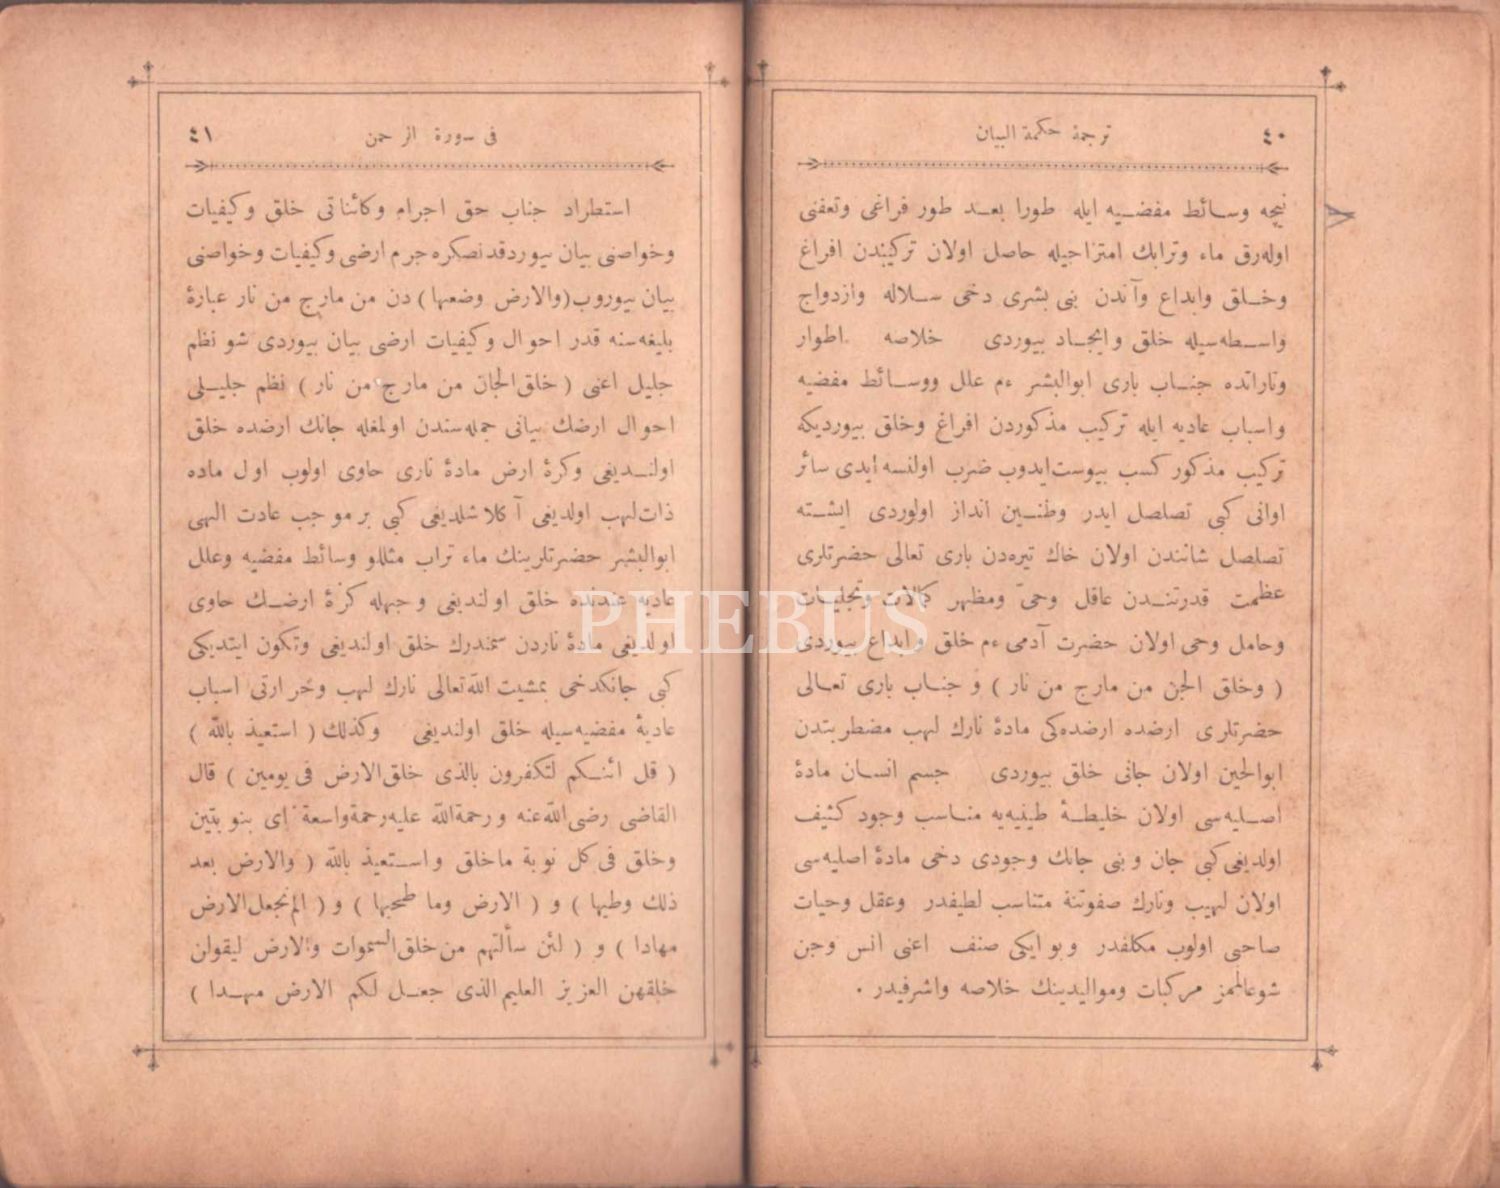 ٤٠ ترجمة حكمة البيان
نيجه وسائط مفضيه ايله طورا بعد طور فراغى وتعفنى
اوله‌رق ماء وترابك امتزاجيله حاصل اولان تركيبندن افراغ
وخلق وابداع وآندن بنى بشرى دخى سلاله وازدواج
واسطه‌سيله خلق وايجاد بيوردى خلاصه اطوار
وتاراتده جناب بارى ابوالبشر ءم علل ووسائط مفضيه
واسباب عاديه ايله تركيب مذكوردن افراغ وخلق بيورديكه
تركيب مذكور كسب يبوست ايدوب ضرب اولنسه ايدى سائر
اوانى كبى تصلصل ايدر وطنين انداز اولوردى ايشته
تصلصل شانندن اولان خاك تيره‌دن بارى تعالى حضرتلرى
عظمت قدرتندن عاقل وحىّ ومظهر كمالات وتجليات
وحامل وحى اولان حضرت آدمى ءم خلق وابداع بيوردى
( وخلق الجن من مارج من نار ) و جناب بارى تعالى
حضرتلرى ارضده ارضده‌كى مادهٔ نارك لهب مضطربتدن
ابوالجين اولان جانى خلق بيوردى جسم انسان مادهٔ
اصليه‌سى اولان خليطهٔ طينيه‌يه مناسب وجود كثيف
اولديغى كبى جان وبنى جانك وجودى دخى مادهٔ اصليه‌سى
اولان لهيب ونارك صفوتنه متناسب لطيفدر وعقل وحيات
صاحبى اولوب مكلفدر وبو ايكى صنف اعنى انس وجن
شوعالممز مركبات ومواليدينك خلاصه واشرفيدر .
فى سورة الرحمن ٤١
استطراد جناب حق اجرام وكائناتى خلق وكيفيات
وخواصنى بيان بيوردقدنصكره جرم ارضى وكيفيات وخواصنى
بيان بيوروب (والارض وضعها) دن من مارج من نار عبارهٔ
بليغه‌سنه قدر احوال وكيفيات ارضى بيان بيوردى شو نظم
جليل اعنى ( خلق الجان من مارج من نار ) نظم جليلى
احوال ارضك بيانى جمله‌سندن اولمغله جانك ارضده خلق
اولنديغى وكرهٔ ارض مادهٔ نارى حاوى اولوب اول ماده
ذات لهب اولديغى آكلاشلديغى كبى بر موجب عادت الهى
ابوالبشر حضرتلرينك ماء تراب مثللو وسائط مفضيه وعلل
عاديه عندنده خلق اولنديغى وجهله كرهٔ ارضك حاوى
اولديغى مادهٔ ناردن سمندرك خلق اولنديغى وتكون ايتديكى
كبى جانكدخى بمشيت الله‌تعالى نارك لهب وحرارتى اسباب
عاديهٔ مفضيه‌سيله خلق اولنديغى وكذلك ( استعيذ بالله )
( قل ائنكم لتكفرون بالذى خلق الارض فى يومين ) قال
القاضى رضى الله عنه ورحمة الله عليه رحمة واسعة اى بنوبتين
وخلق فى كل نوبة ماخلق واستعيذ بالله ( والارض بعد
ذلك وطيها ) و ( الارض وما طحيها ) و ( الم نجعل الارض
مهادا ) و ( لئن سألتهم من خلق السموات والارض ليقولن
خلقهن العزيز العليم الذى جعل لكم الارض مهدا )
PHEBUS